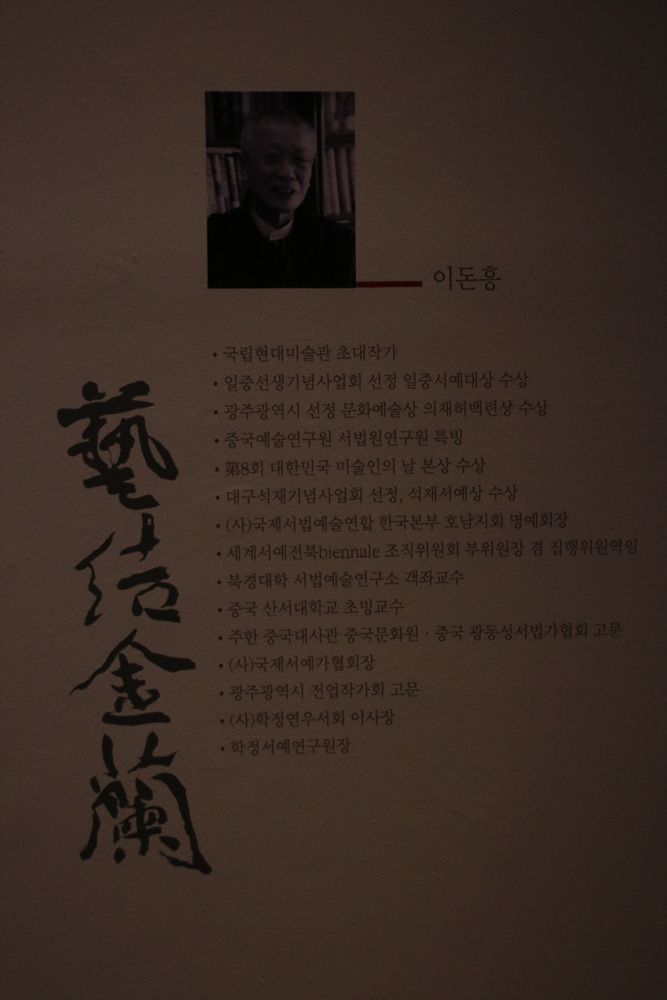 이돈흥
• 국립현대미술관 초대작가
• 일중선생기념사업회 선정 일중서예대상 수상
• 광주광역시 선정 문화예술상 의재허백련상 수상
• 중국예술연구원 서법원연구원 특빙
• 第8회 대한민국 미술인의 날 본상 수상
• 대구석재기념사업회 선정, 석재서예상 수상
• (사)국제서법예술연합 한국본부 호남지회 명예회장
• 세계서예전북biennale 조직위원회 부위원장 겸 집행위원역임
• 북경대학 서법예술연구소 객좌교수
• 중국 산서대학교 초빙교수
• 주한 중국대사관 중국문화원 · 중국 광동성서법가협회 고문
• (사)국제서예가협회장
• 광주광역시 전업작가회 고문
• (사)학정연우서회 이사장
• 학정서예연구원장
藝結金蘭